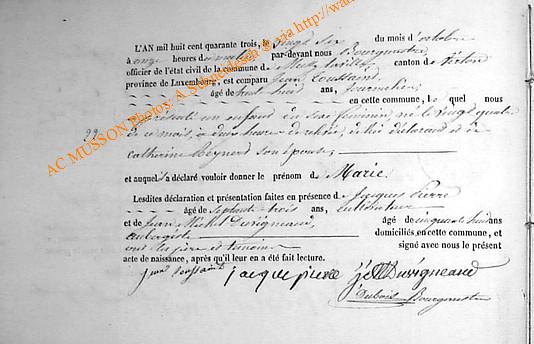 L'AN mil huit cent quarante trois, le vingt six du mois d'octobre
à onze heures du matin par-devant nous Bourgmestre
officier de l'état civil de la commune de canton de
province de Luxembourg, est comparu Jean Toussaint
âgé de trente huit ans, Journalier
en cette commune, le quel nous
a présenté un enfant du sexe féminin, né le vingt quatre
de ce mois, à deux heures de relevée, de lui déclarant et de
Catherine son épouse,
et auquel a déclaré vouloir donner le prénom de Marie.
Lesdites déclaration et présentation faites en présence de Jacques Pierre
âgé de septante-trois ans, cultivateur
et de Jean Michel Duvigneaud, âgé de cinquante huit ans
aubergiste domiciliés en cette commune, et
ont les père et témoins signé avec nous le présent
acte de naissance, après qu'il leur en a été fait lecture.
jean toussaint jacque pierre Duvigneaud
Dubois Bourgmestre
99
AC MUSSON Photos: A